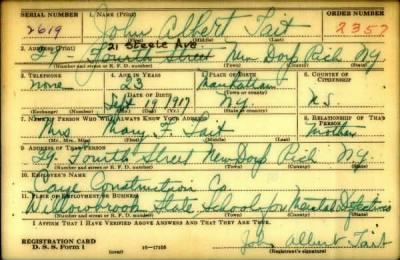 SERIAL NUMBER 1. NAME (Print) ORDER NUMBER
2619 John Albert Tait 2357
(First) (Middle) (Last)
21 Steele Ave.
2. ADDRESS (Print)
24 Fourth Street New Dorp Rich N.Y.
(Number and street or R. F. D. number) (Town) (County) (State)
3. TELEPHONE 4. AGE IN YEARS 5. PLACE OF BIRTH 6. COUNTRY OF CITIZENSHIP
None 23 Manhattan
DATE OF BIRTH (Town or county)
Sept 19 1917 N.Y. U.S.
(Exchange) (Number) (Mo.) (Day) (Yr.) (State or country)
7. NAME OF PERSON WHO WILL ALWAYS KNOW YOUR ADDRESS 8. RELATIONSHIP OF THAT PERSON
Mrs Mary F. Tait Mother
(Mr., Mrs., Miss) (First) (Middle) (Last)
9. ADDRESS OF THAT PERSON
24 Fourth Street New Dorp Rich N.Y.
(Number and street or R. F. D. number) (Town) (County) (State)
10. EMPLOYER'S NAME
Caye Construction Co.
11. PLACE OF EMPLOYMENT OR BUSINESS
Willowbrook State School for Mental Defectives
(Number and street or R. F. D. number) (Town) (County) (State)
I AFFIRM THAT I HAVE VERIFIED ABOVE ANSWERS AND THAT THEY ARE TRUE.
REGISTRATION CARD
D. S. S. Form 1 16—17105 John Albert Tait
(over) (Registrant's signature)